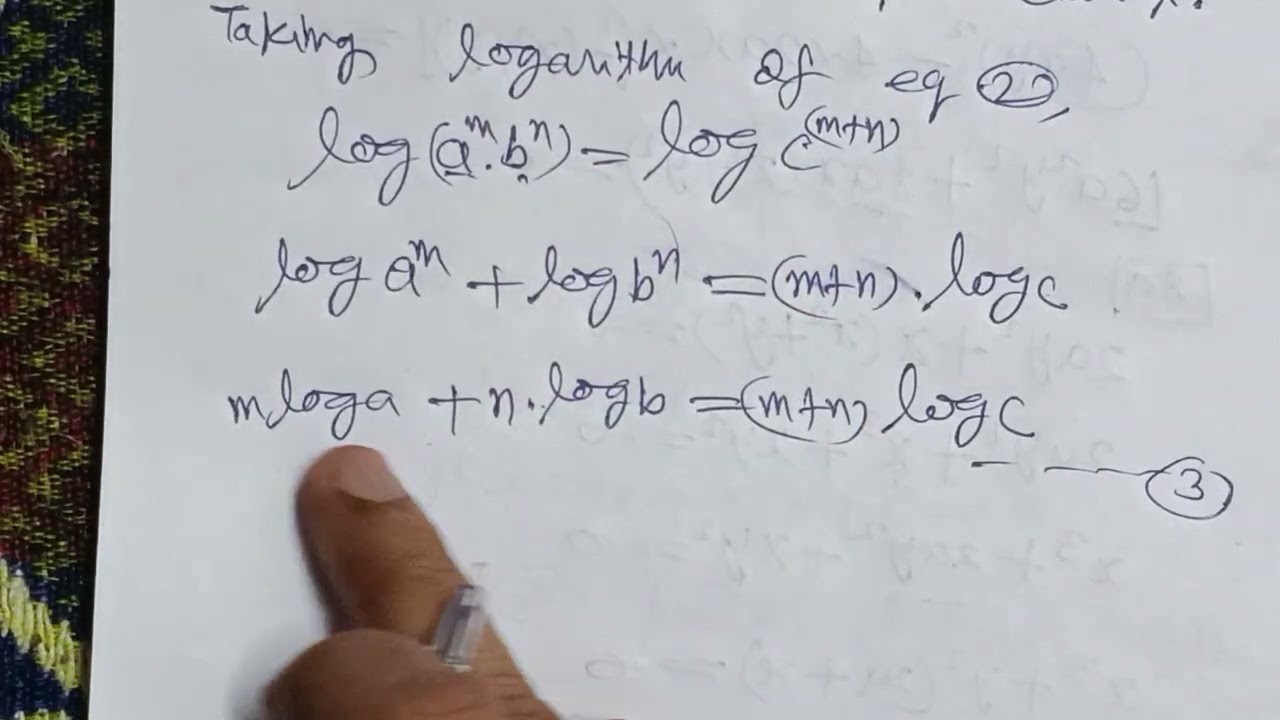 Taking logarithm of eq ②,
log(a^m.b^n) = log c^(m+n)
log a^m + log b^n = (m+n). log c
m log a + n. log b = (m+n) log c
- - — ③